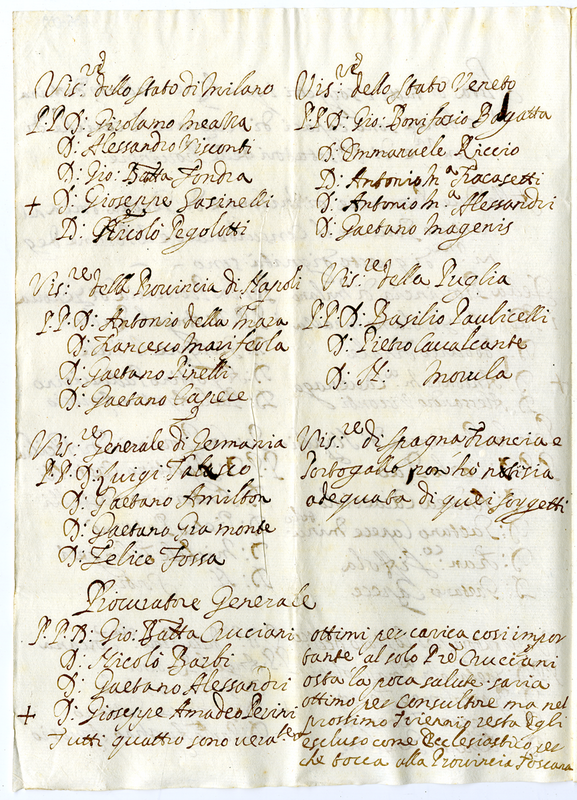 Vis:re dello Stato di Milano
P.P. D: Girolamo Meazza
D: Alessandro Visconti
D: Gio: Batta Fondra
+ D: Gioseppe Gasinelli
D: Nicolò Pegolotti
Vis:re della Provincia di Napoli
P.P. D: Antonio della Marra
D: Francesco Maria
D: Gaetano Pinelli
D: Gaetano Capece
Vis:re Generale di Germania
P.P. D: Luigi
D: Gaetano Amilton
D: Gaetano Gramonte
D: Felice Fossa
Procuratore Generale
P.P. D: Gio: Batta Crucciani
D: Nicolò Barbi
D: Gaetano Alessandri
+ D: Gioseppe Amadeo
Tutti quattro sono verate
Vis:re dello Stato Veneto
P.P. D: Gio: Bonifacio Bagatta
D: Emmanuele Riccio
D: Antonio M.a Fracasetti
D: Antonio M.a Alessandri
D: Gaetano Magenis
Vis:re della Puglia
P.P. D: Basilio Paulicelli
D: Pietro Cavalcante
D: N: Morula
Vis:re di Spagna Francia e
Portogallo non hò notitia
adequata di quei sorgetti
ottimi per carica così impor
tante al solo Pre Crucciani
osta la poca salute. saria
ottimo per Consultore ma nel
prossimo Triennio resta Egli
escluso come Ecclesiastico per
che tocca alla Provincia Toscana